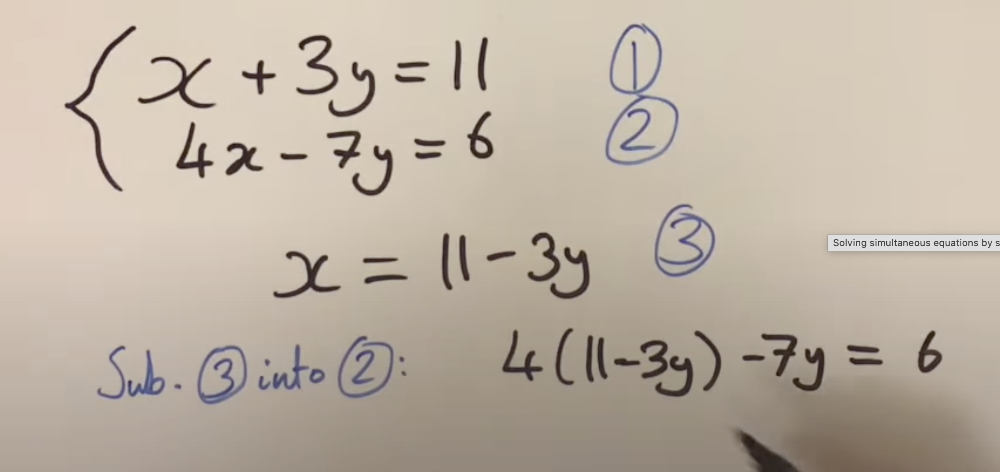 x + 3y = 11 ①
4x - 7y = 6 ②
x = 11 - 3y ③
Solving simultaneous equations by s
Sub. ③ into ②: 4(11-3y) -7y = 6